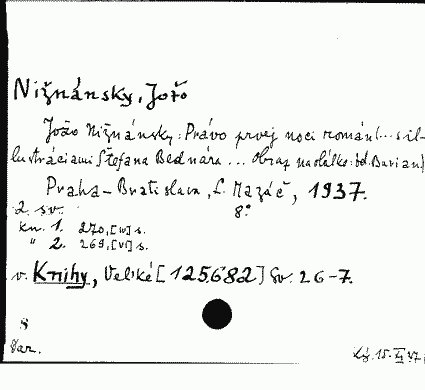 Nižnánsky, Jožo
Jožo Nižnánsky: Právo prvej noci román (... s il-
lustráciami Štefana Bednára ... Obraz na obálke: bd. Burian)
Praha - Bratislava, L. Mazáč, 1937.
2. sv. 8°
kn. 1. 270, [IV] s.
" 2. 269, [VI] s.
v. Knihy, Veľké [125.682] Sv. 26-7.
8
Var.